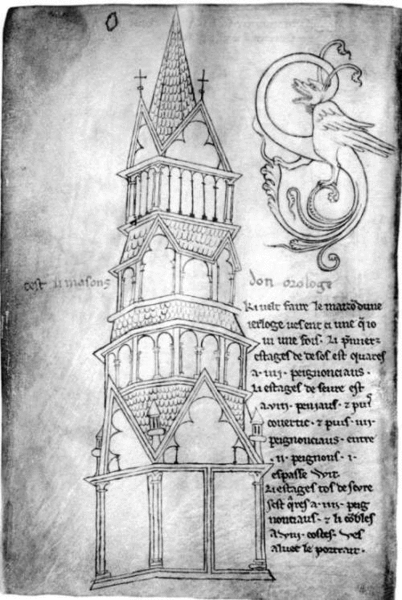 cest li masons don orologe
Ki velt faire le maizō dune
ierloge ves ent ci une q̄ io
ui une fois. Li p̄miers
estages de desos est quares
a .iiii. peignonciaus.
Li estages de seure est
a .viii. peniaus. ⁊ puis
covertic. ⁊ puis .iiii.
peignonciaus. entre
.ii. peignons. i.
espasse wit.
Li estages tos de seure
sest q̄res a .iiii. peig
nonciaus. ⁊ li cōbles
a viii. costes. ves
aluec le portrait.